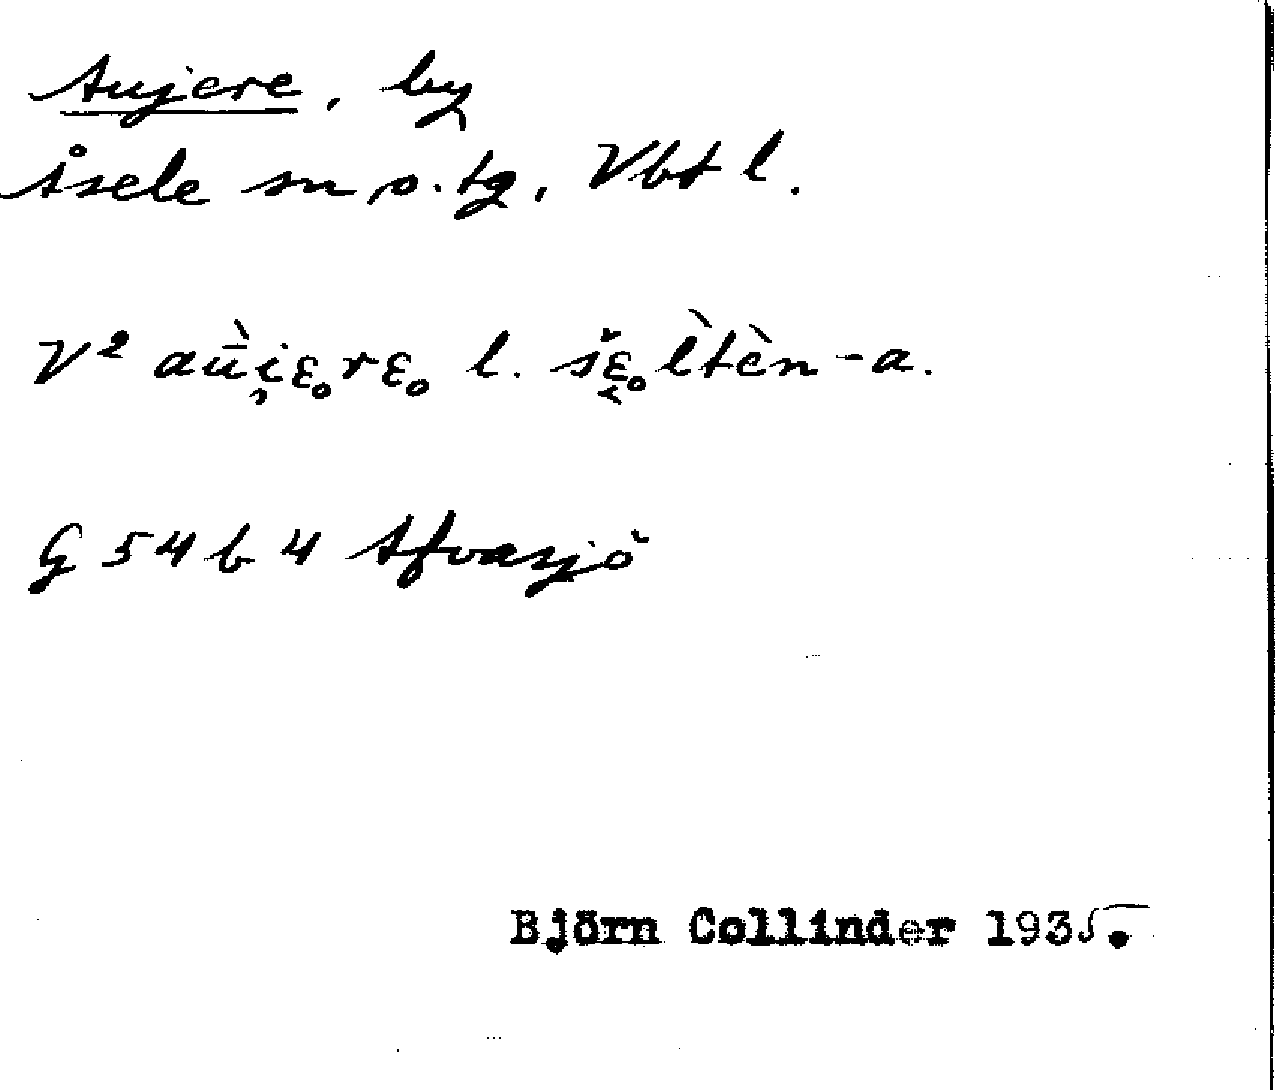 Aujere, by
Åsele sn o. tg, Vbt l.
V² aùi̯ɛ̥rɛ̥ l. šɛ̥̀ltèn-a.
G 54 b 4 Afvasjö
Björn Collinder 1935.